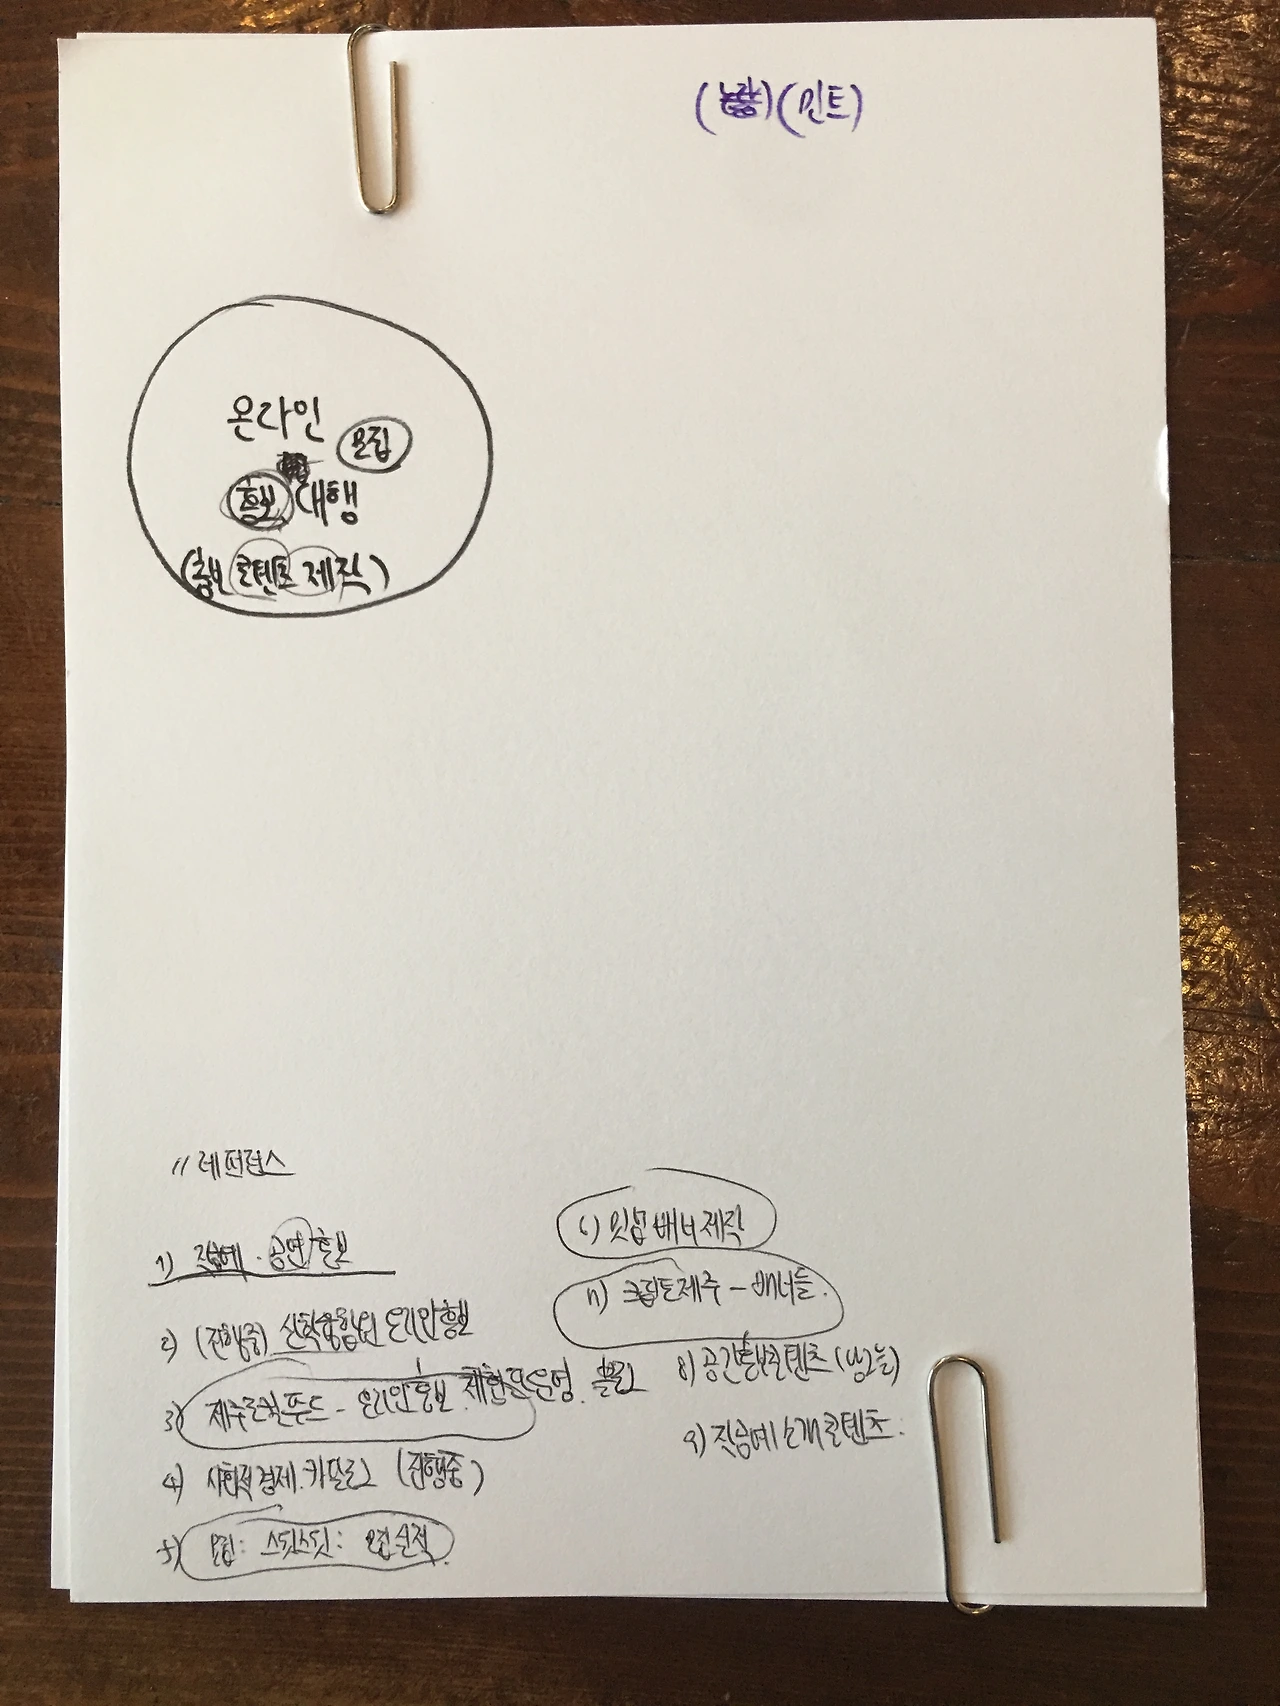 (노랑) (민트)
온라인
모집
홍보 대행
(홍보 콘텐츠 제작)
// 레퍼런스
1) 공연 홍보
2) (진행중) 산학융합원 온라인 홍보
3) 제주로컬푸드 - 온라인 홍보. 체험단 운영. 블로그
4) 사회적경제. 카달로그 (진행중)
5) 모집: 스팃스팃: 모집실적
6) 배너제작
7) 크립토제주 - 배너들.
8) 공간홍보콘텐츠
9) 소개콘텐츠.